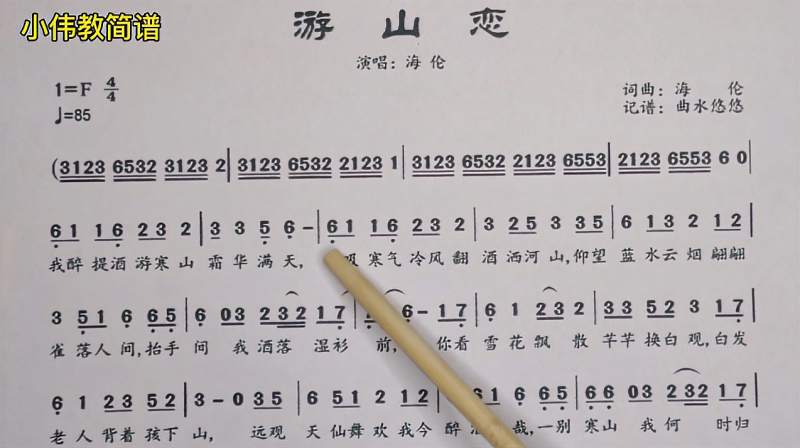 小伟教简谱
游山恋
演唱：海伦
1=F 4/4
词曲：海 伦
♩=85
记谱：曲水悠悠
(3123 6532 3123 2 | 3123 6532 2123 1 | 3123 6532 3123 6553 | 2123 6553 6 0
6 1 1 6 2 3 2 | 3 3 5 6 – | 6 1 1 6 2 3 2 | 3 2 5 3 3 5 | 6 1 3 2 1 2 |
我醉提酒游寒山霜华满天， 吸寒气冷风翻酒洒河山，仰望蓝水云烟翩翩
3 5 1 6 6 5 | 6 0 3 2 3 2 1 7 | 6 – 1 7 | 6 1 2 3 2 3 | 3 – 1 7 |
雀落人间，抬手间我洒落湿衫前， 你看雪花飘散芊芊换白观，白发
6 1 2 3 5 2 | 3 – 0 3 5 | 6 5 1 2 1 2 6 5 | 6 6 0 3 2 3 2 1 7 |
老人背着孩下山， 远观天仙舞欢我今醉 裁，一别寒山我何时归